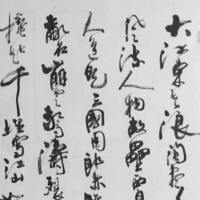 大江東去浪淘盡
風流人物故壘西
人道是三國周郎赤
亂石崩雲驚濤裂
捲起千堆雪江山如